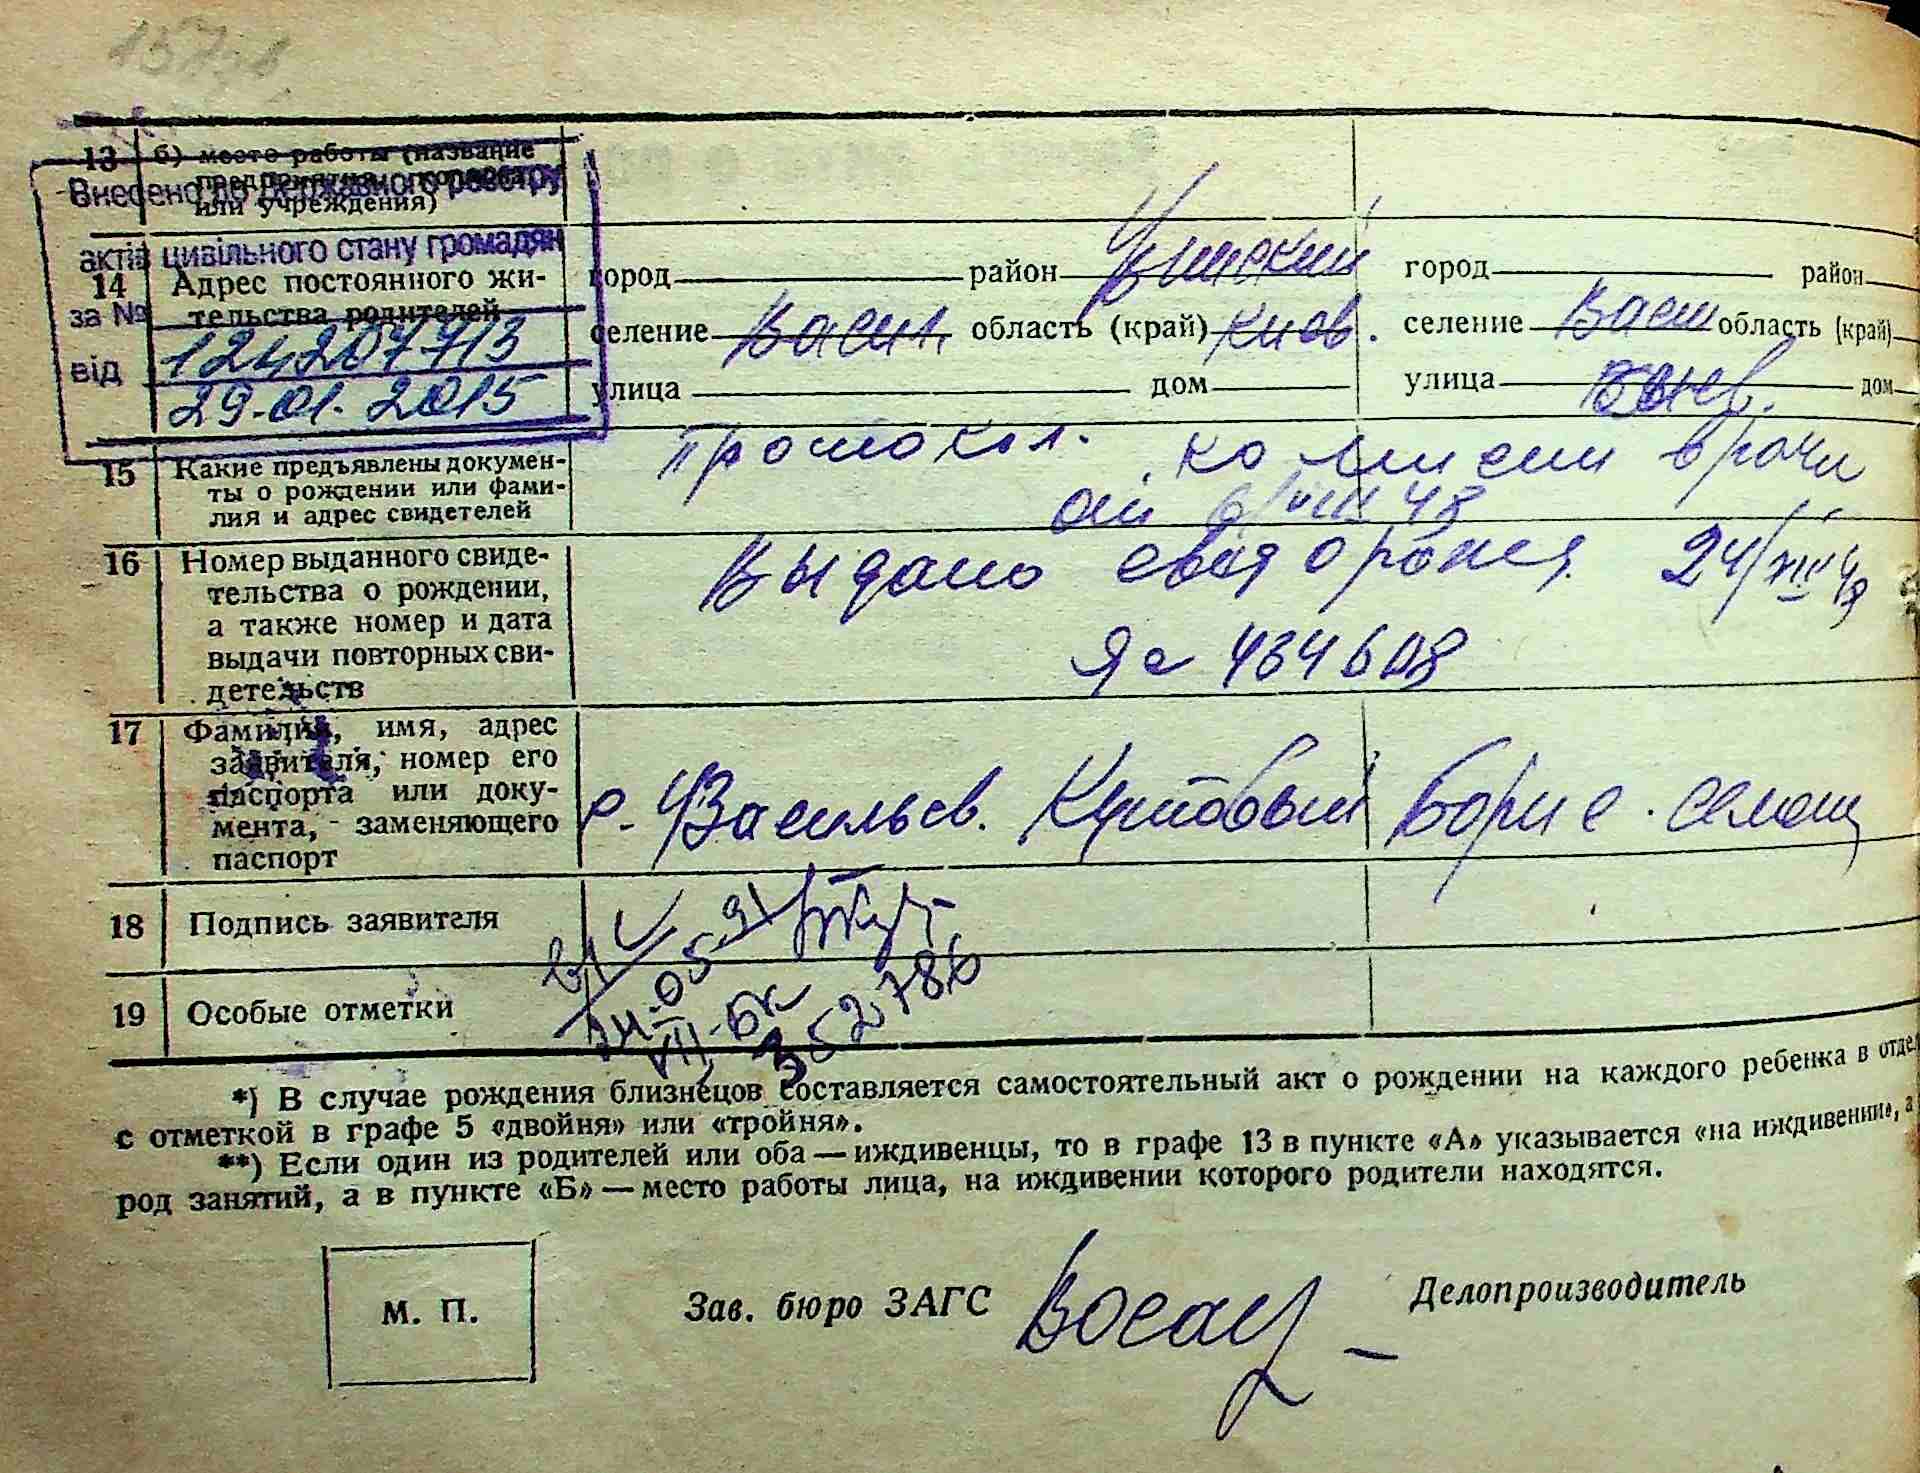 13 б) место работы (название
предприятия, колхоза
или учреждения)
Внесено до Державного реєстру
актів цивільного стану громадян
за № 124207713
від 29.01.2015
14 Адрес постоянного жи-
тельства родителей
город район город район
селение Васил. область (край) Киев. селение Васил область (край)
улица дом улица Киев. дом
15 Какие предъявлены докумен-
ты о рождении или фами-
лия и адрес свидетелей
Протокол. комисии врачи
48
16 Номер выданного свиде-
тельства о рождении,
а также номер и дата
выдачи повторных сви-
детельств
Выдано 24/XII 49
Яс 434608
17 Фамилия, имя, адрес
заявителя, номер его
паспорта или доку-
мента, заменяющего
паспорт
Васильев. Кутовый Борис
18 Подпись заявителя
19 Особые отметки
05.91
VII-БК
352786
*) В случае рождения близнецов составляется самостоятельный акт о рождении на каждого ребенка в отдел
с отметкой в графе 5 «двойня» или «тройня».
**) Если один из родителей или оба — иждивенцы, то в графе 13 в пункте «А» указывается «на иждивении», а
род занятий, а в пункте «Б» — место работы лица, на иждивении которого родители находятся.
М. П.
Зав. бюро ЗАГС
Делопроизводитель